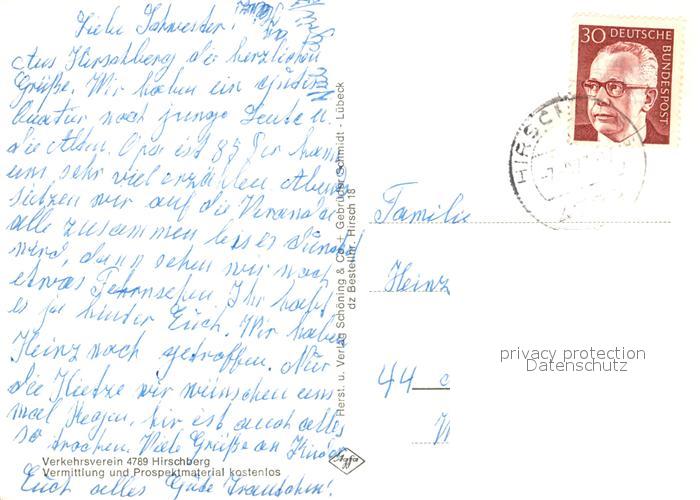 Liebe Schwester!
Aus Hirschberg die herzlichen
Grüße. Wir haben ein
noch junge Leute u.
die Alten. Opa ist 83 Der kann
uns sehr viel erzählen Abends
sitzen wir auf die Veranda
alle zusammen bis es dunkel
wird, dann sehen wir noch
etwas Fehrnsehen. Ihr habt
es ja hinter Euch. Wir haben
Heinz noch getroffen. Nur
die Hietze wir wünschen uns
mal Regen, hir ist auch alles
so trocken. Viele Grüße an
Euch alles Gute
Verkehrsverein 4789 Hirschberg
Vermittlung und Prospektmaterial kostenlos
Herst. u. Verlag Schöning & Co + Gebrüder Schmidt - Lübeck
dz Bestellnr. Hirsch 18
Agfa
30 DEUTSCHE
BUNDESPOST
HIRSCH
Familie
Heinz
44
privacy protection
Datenschutz